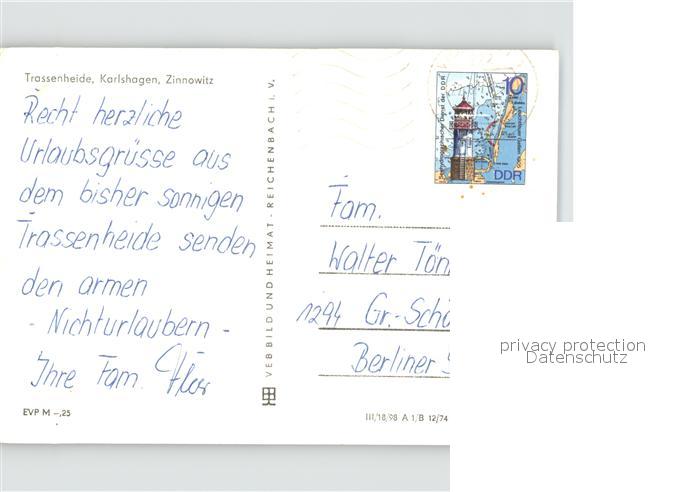 Trassenheide, Karlshagen, Zinnowitz
Recht herzliche
Urlaubsgrüsse aus
dem bisher sonnigen
Trassenheide senden
den armen
- Nichturlaubern -
Ihre Fam.
EVP M -,25
VEB BILD UND HEIMAT · REICHENBACH i. V.
10
DDR
Fam.
Walter Tön
1294 Gr.-Schö
Berliner S
III/18/98 A 1/B 12/74
privacy protection
Datenschutz